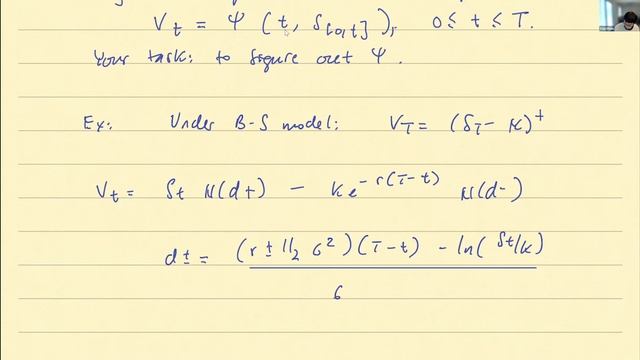 V_t = Ψ (t, S_[0,t]), 0 ≤ t ≤ T.
Your task: to figure out Ψ.
Ex: Under B-S model: V_T = (S_T - K)^+
V_t = S_t N(d+) - K e^{-r(T-t)} N(d-)
d± = (r ± 1/2 σ^2)(T-t) - ln(S_t/K)
σ